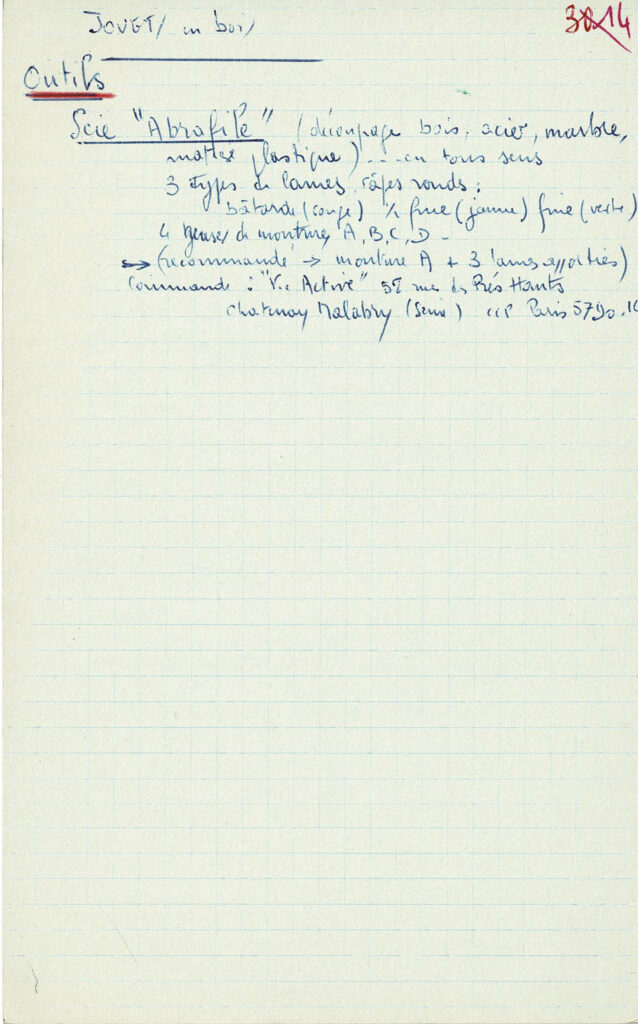 JOUETS en bois
14
Outils
Scie "Abrafile" (découpage bois, acier, marbre,
matière plastique) .... en tous sens
3 types de lames râpes ronds :
bâtarde (rouge) ½ fine (jaune) fine (verte)
4 genres de montures A, B, C, D -
→ (recommandé → monture A + 3 lames assorties)
Commande : "Vie Active" rue des Prés Hauts
Chatenay Malabry (Seine) CCP Paris 5790.